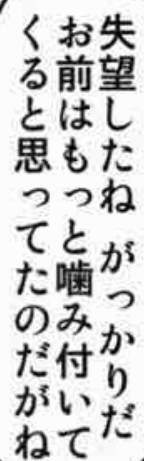 失望したね がっかりだ
お前はもっと噛み付いて
くると思ってたのだがね